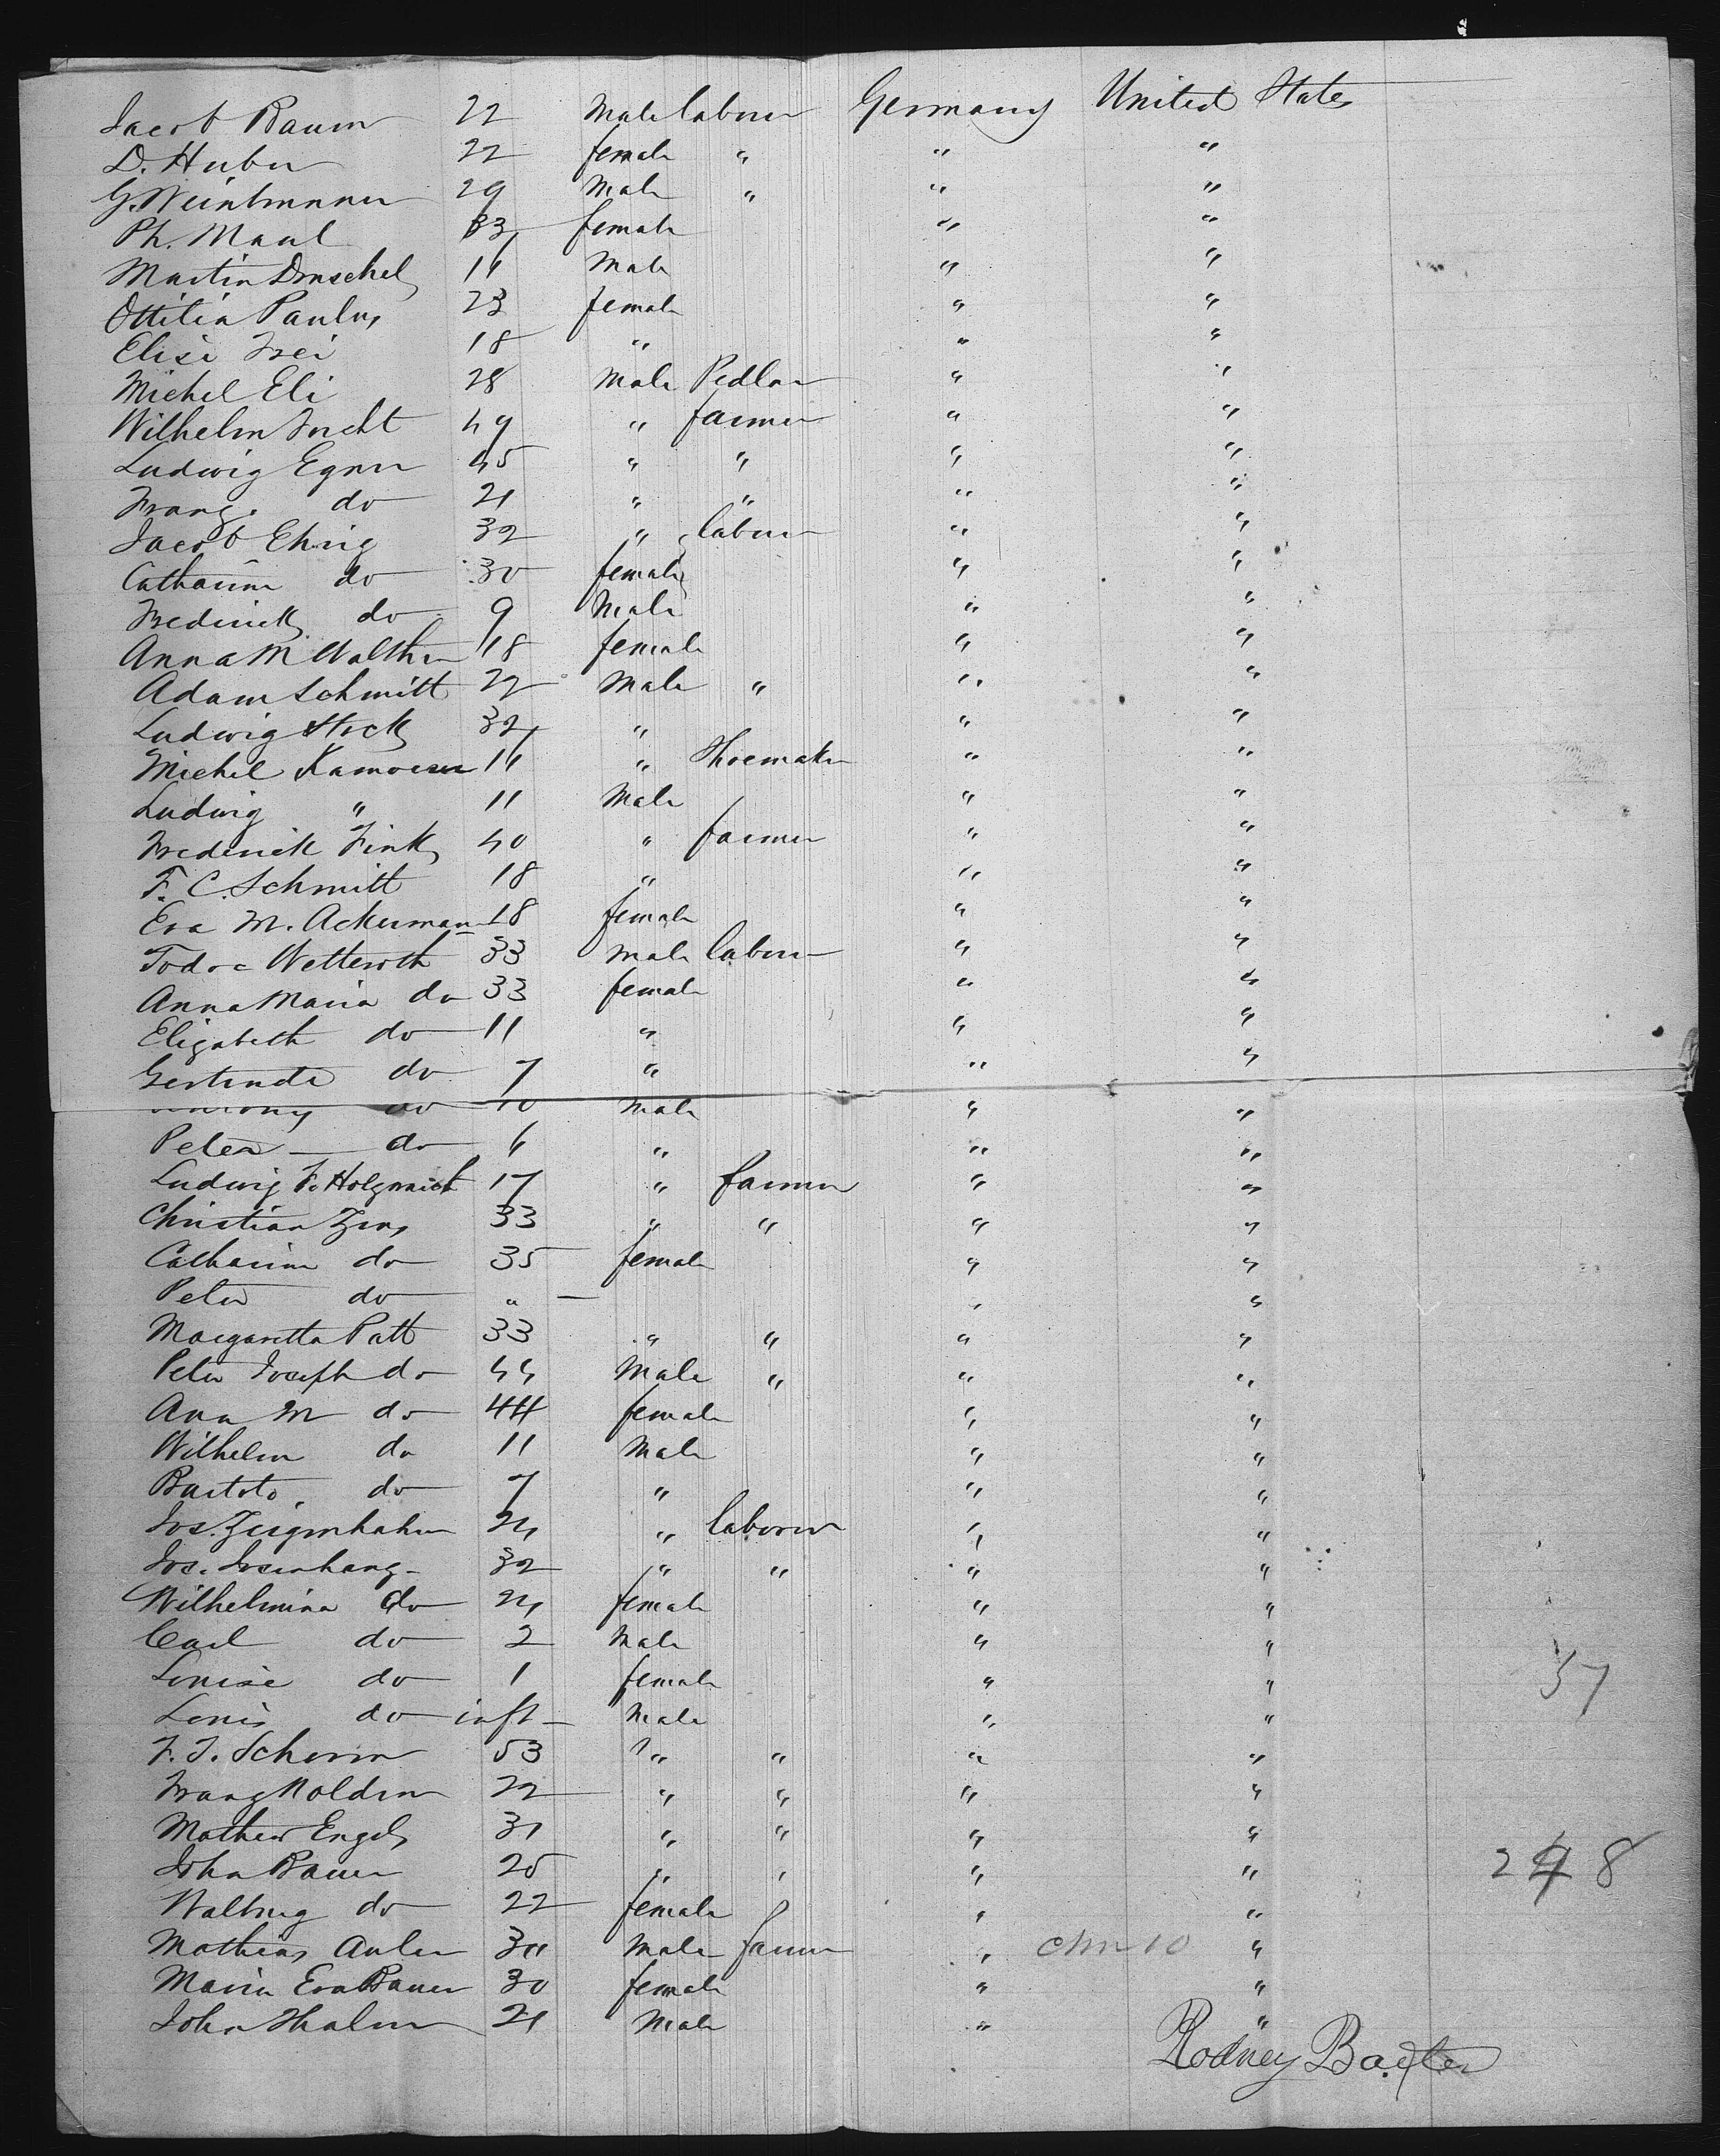 Jacob Baum 22 Male labour Germany United States
D. Huber 22 female " " "
G. Weinbrunner 29 Male " " "
Ph. Maul 33 female " "
Martin 14 Male " "
Ottilia Paulus 23 female " "
Elise Frei 18 " " "
Michel Eli 28 Male Pedlar " "
Wilhelm 49 " farmer " "
Ludwig Egner 45 " " " "
Franz do 21 " " " "
Jacob Ehrig 32 " labour " "
Catharina do 30 female " "
Frederick do 9 Male " "
Anna M Walther 18 female " "
Adam Schmitt 22 Male " " "
Ludwig Stock 32 " " "
Michel 14 " Shoemaker " "
Ludwig " 11 Male " "
Frederick Fink 40 " farmer " "
F. C. Schmitt 18 " " "
Eva M. Ackerman 18 female " "
Wetteroth 33 male labour " "
Anna Maria do 33 female " "
Elizabeth do 11 " " "
Gertrude do 7 " " "
do 10 Male " "
Peter do 6 " " "
Ludwig F. 17 " farmer " "
Christian 33 " " " "
Catharina do 35 female " "
Peter do " — " "
Margaretta Patt 33 " " " "
Peter Joseph do 44 Male " " "
Ana M do 44 female " "
Wilhelm do 11 Male " "
do 7 " " "
Jos. Zeigenhahn 24 " laborer " "
Jos. 32 " " " "
Wilhelmina do 24 female " "
Carl do 2 Male " "
Louise do 1 female " " 57
Louis do inft — Male " "
F. J. 53 " " " "
Franz 22 " " " "
Mathew Engels 31 " " " "
John Bauer 25 " " " " 248
Walburg do 22 female " "
Mathias 30 Male farmer " "
Maria Eva Bauer 30 female " "
John 21 Male " "
Rodney Baxter